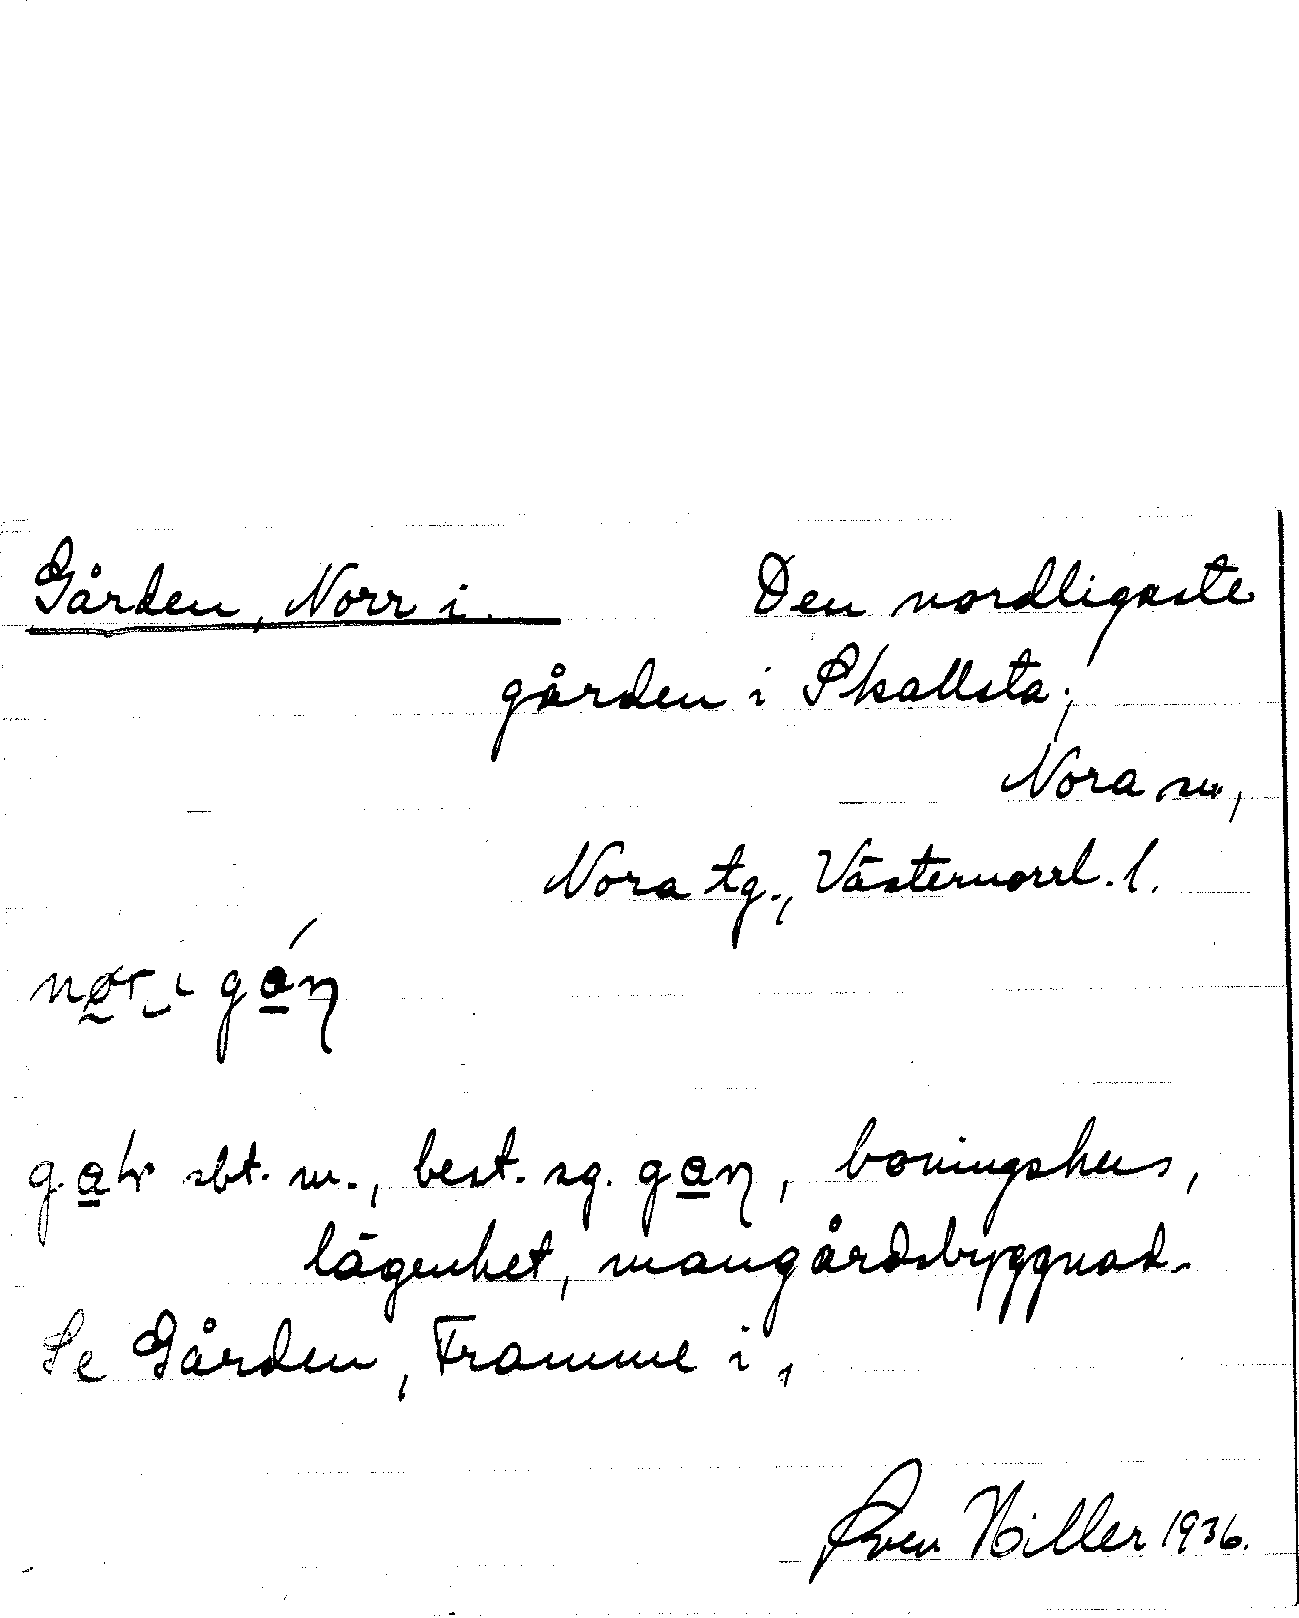 Gården, Norr i. Den nordligaste
gården i Skallsta;
Nora sn,
Nora tg., Västernorrl. l.
nør i gán
sbt. m., best. sg. gan, boningshus,
lägenhet, mangårdsbyggnad.
Se Gården, Framme i,
Sven Hiller 1936.